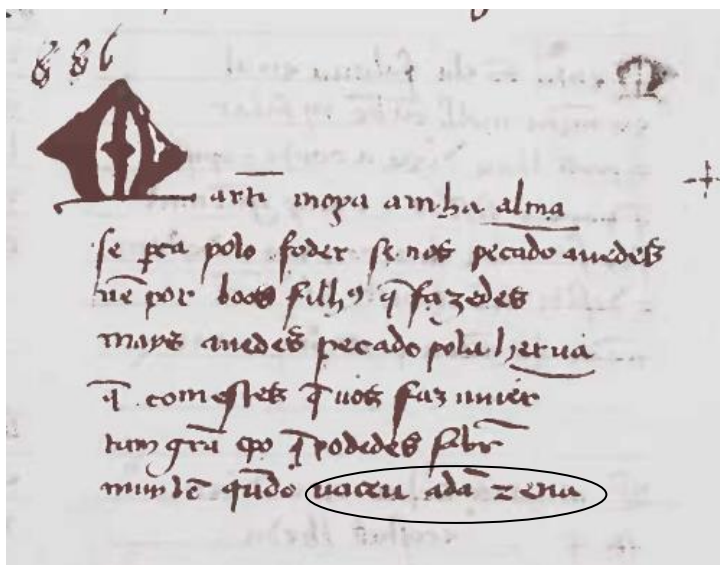 886
Martĩ moya a mha alma
se pca polo foder se nos pecado auedes
nẽ por boos filhꝯ q̃ fazedes
mays auedes pecado pola herua
q̃ comestes q̃ uos faz uiuer
tam grã tpo q̃ podedes sabr̃
mui bẽ qũdo naceu adã z eua